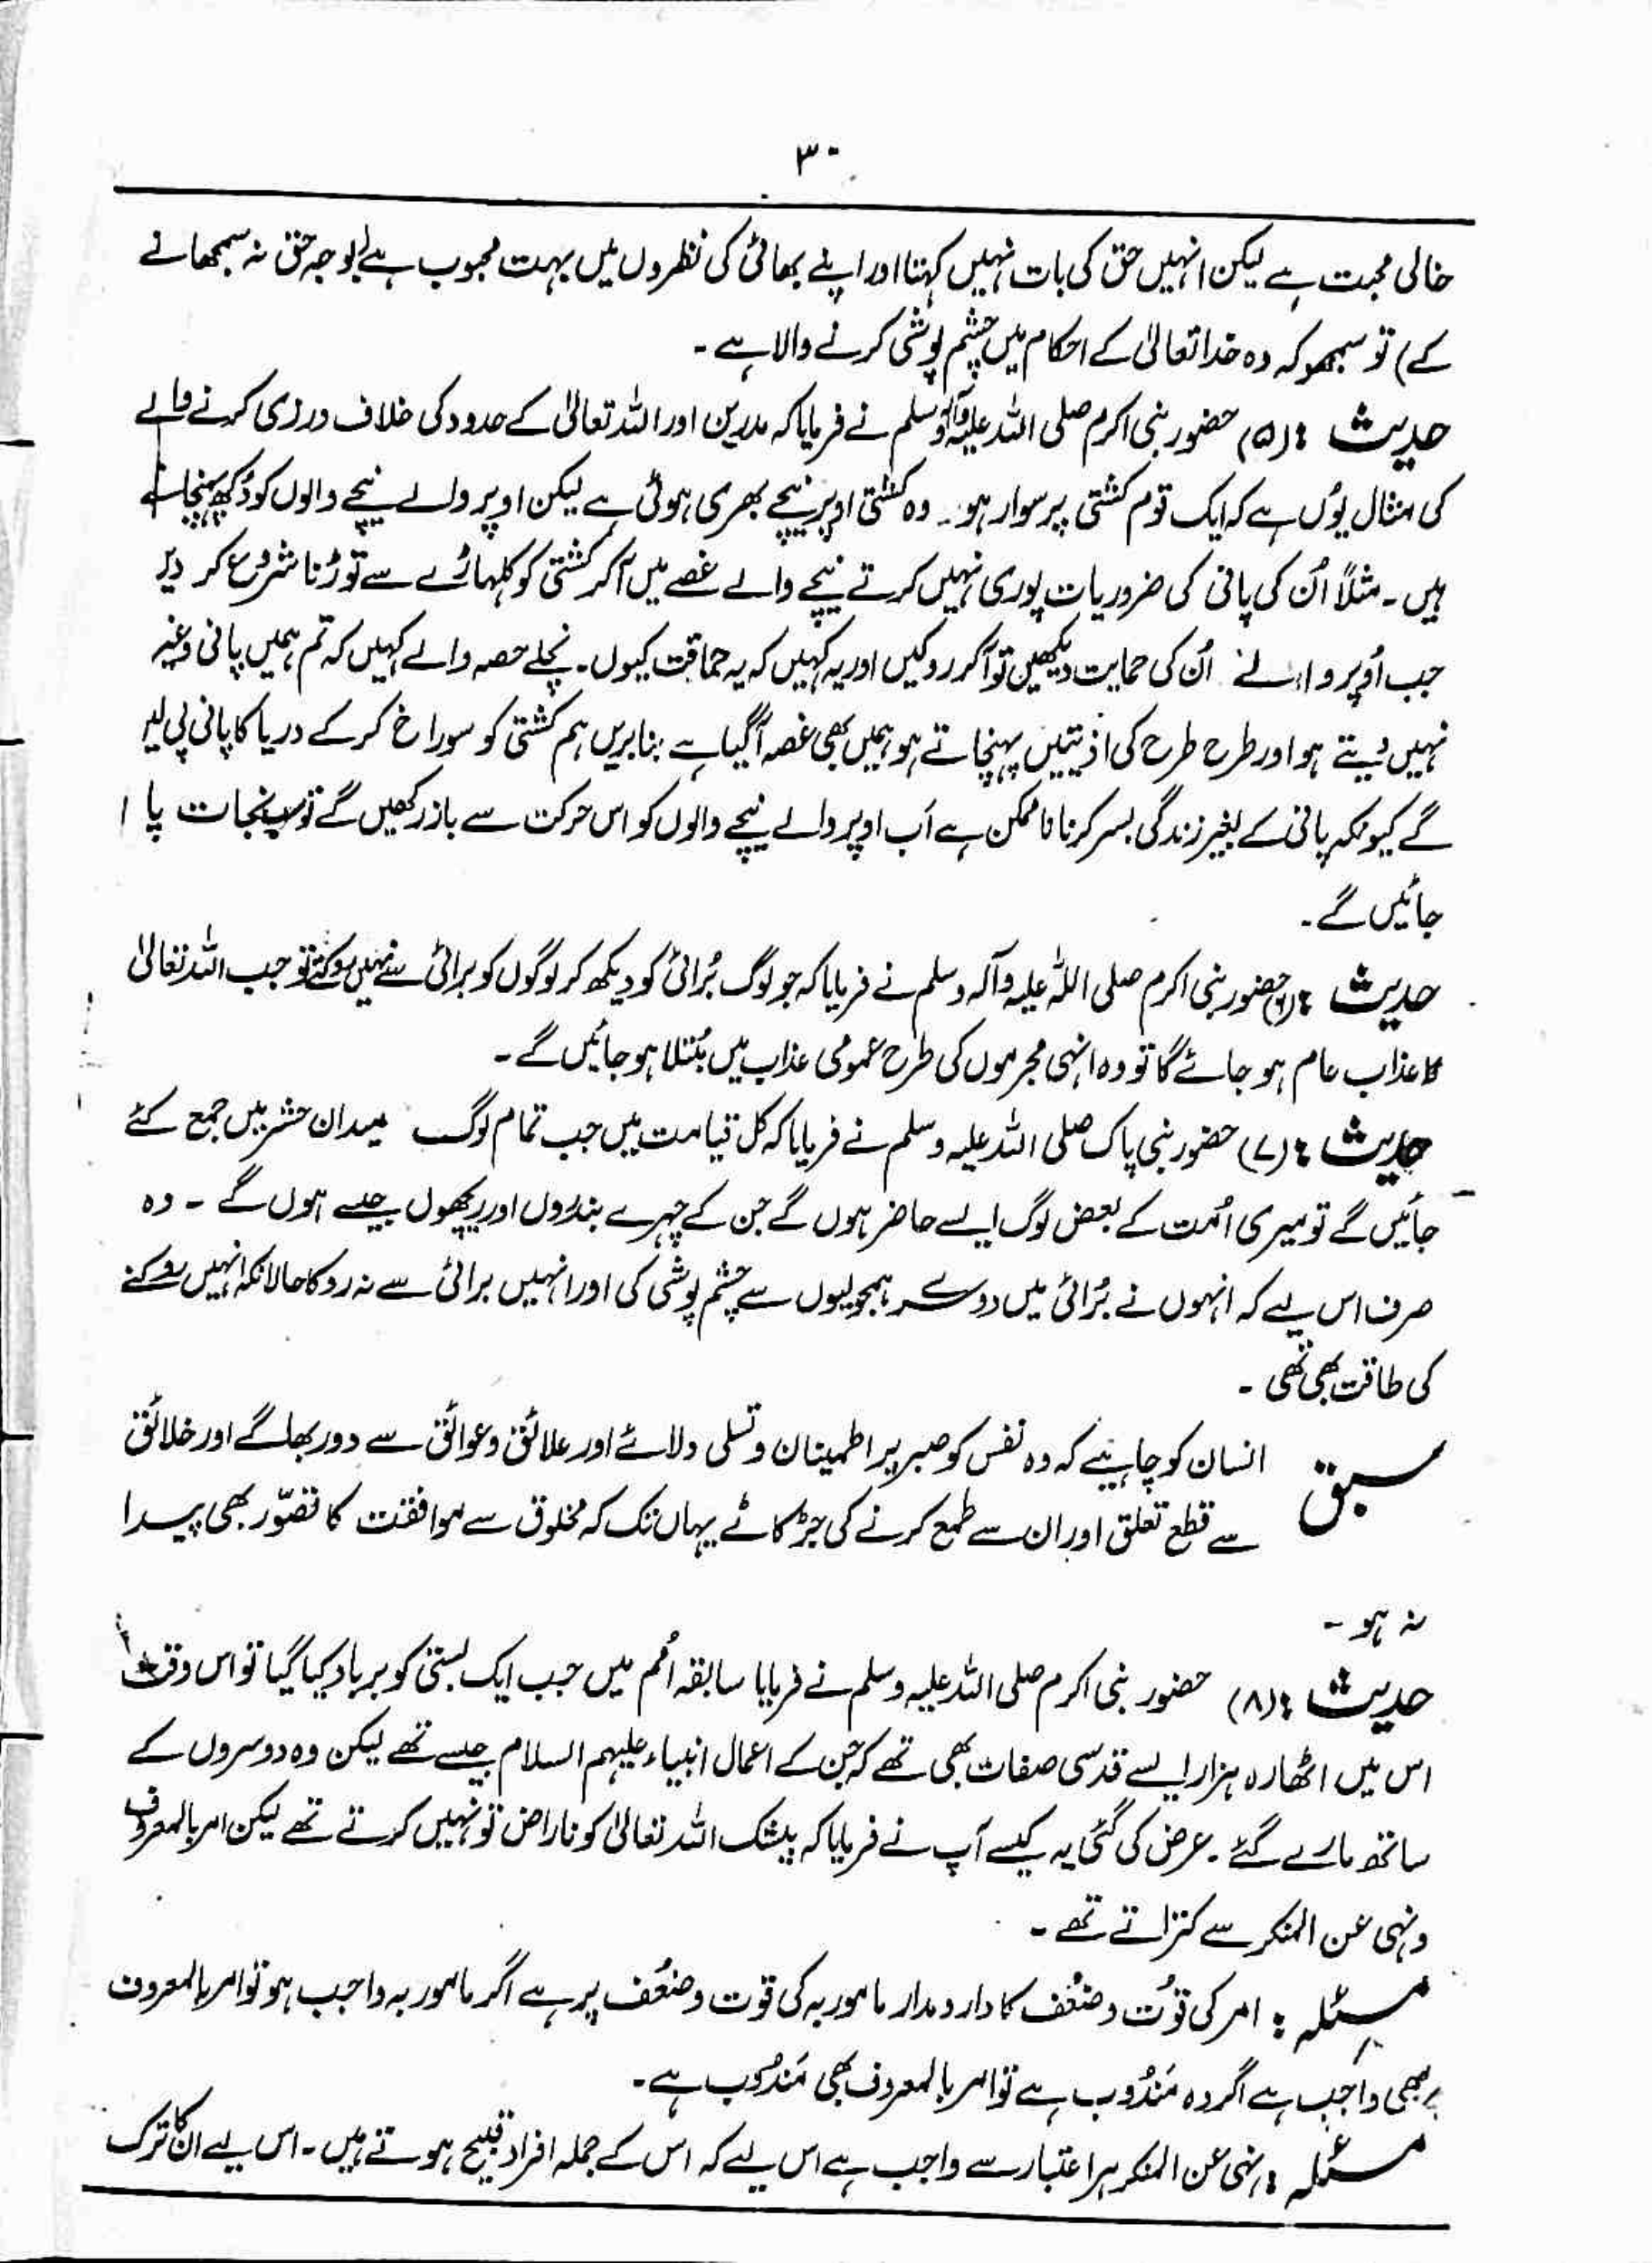 ۳۰
خالی محبت ہے لیکن انہیں حق کی بات نہیں کہتا اور اپنے بھائی کی نظروں میں بہت محبوب ہے بوجہ حق نہ سمجھانے
کے) تو سمجھو کہ وہ خدا تعالیٰ کے احکام میں چشم پوشی کرنے والا ہے ۔
حدیث :(۵) حضور نبی اکرم صلی اللہ علیہ وآلہ وسلم نے فرمایا کہ مدہین اور اللہ تعالیٰ کے حدود کی خلاف ورزی کرنے والے
کی مثال یوں ہے کہ ایک قوم کشتی پر سوار ہو ۔ وہ کشتی اوپر نیچے بھری ہوئی ہے لیکن اوپر والے نیچے والوں کو دُکھ پہنچاتے
ہیں ۔ مثلاً اُن کی پانی کی ضروریات پوری نہیں کرتے نیچے والے غصے میں آکر کشتی کو کلہاڑے سے توڑنا شروع کر دیں
جب اُوپر والے اُن کی حمایت دیکھیں تو آکر روکیں اور یہ کہیں کہ یہ حماقت کیوں ۔ نچلے حصہ والے کہیں کہ تم ہمیں پانی وغیر
نہیں دیتے ہو اور طرح طرح کی اذیتیں پہنچاتے ہو ہمیں بھی غصہ آگیا ہے بنابریں ہم کشتی کو سوراخ کر کے دریا کا پانی پی لیں
گے کیونکہ پانی کے بغیر زندگی بسر کرنا ناممکن ہے اَب اوپر والے نیچے والوں کو اس حرکت سے باز رکھیں گے تو سب نجات پا
جائیں گے ۔
حدیث :(۶) حضور نبی اکرم صلی اللہ علیہ وآلہ وسلم نے فرمایا کہ جو لوگ بُرائی کو دیکھ کر لوگوں کو برائی سے نہیں روکتے تو جب اللہ تعالیٰ
کا عذاب عام ہو جائے گا تو وہ انہی مجرموں کی طرح عمومی عذاب میں مُبتلا ہو جائیں گے ۔
حدیث :(۷) حضور نبی پاک صلی اللہ علیہ وسلم نے فرمایا کہ کل قیامت میں جب تمام لوگ میدان حشر میں جمع کئے
جائیں گے تو میری اُمت کے بعض لوگ ایسے حاضر ہوں گے جن کے چہرے بندروں اور ریچھوں جیسے ہوں گے ۔ وہ
صرف اس لیے کہ انہوں نے بُرائی میں دوسرے ہمجولیوں سے چشم پوشی کی اور انہیں برائی سے نہ روکا حالانکہ انہیں روکنے
کی طاقت بھی تھی ۔
سبق انسان کو چاہیئے کہ وہ نفس کو صبر پر اطمینان و تسلی دلائے اور علائق و عوائق سے دور بھاگے اور خلائق
سے قطع تعلق اور ان سے طمع کرنے کی جڑ کاٹے یہاں تک کہ مخلوق سے موافقت کا تصوّر بھی پیدا
نہ ہو ۔
حدیث :(۸) حضور نبی اکرم صلی اللہ علیہ وسلم نے فرمایا سابقہ اُمم میں جب ایک بستی کو برباد کیا گیا تو اس وقت
اس میں اٹھارہ ہزار ایسے قدسی صفات بھی تھے کہ جن کے اعمال انبیاء علیہم السلام جیسے تھے لیکن وہ دوسروں کے
ساتھ مارے گئے ۔ عرض کی گئی یہ کیسے آپ نے فرمایا کہ بیشک اللہ تعالیٰ کو ناراض تو نہیں کرتے تھے لیکن امر بالمعروف
و نہی عن المنکر سے کتراتے تھے ۔
مسئلہ : امر کی قوُت و ضعُف کا دارومدار مامور بہ کی قوت و ضعُف پر ہے اگر مامور بہ واجب ہو تو امر بالمعروف
بھی واجب ہے اگر وہ مَندُوب ہے تو امر بالمعروف بھی مَندُوب ہے ۔
مسئلہ : نہی عن المنکر ہر اعتبار سے واجب ہے اس لیے کہ اس کے جملہ افراد قبیح ہوتے ہیں ۔ اس لیے ان کا ترک